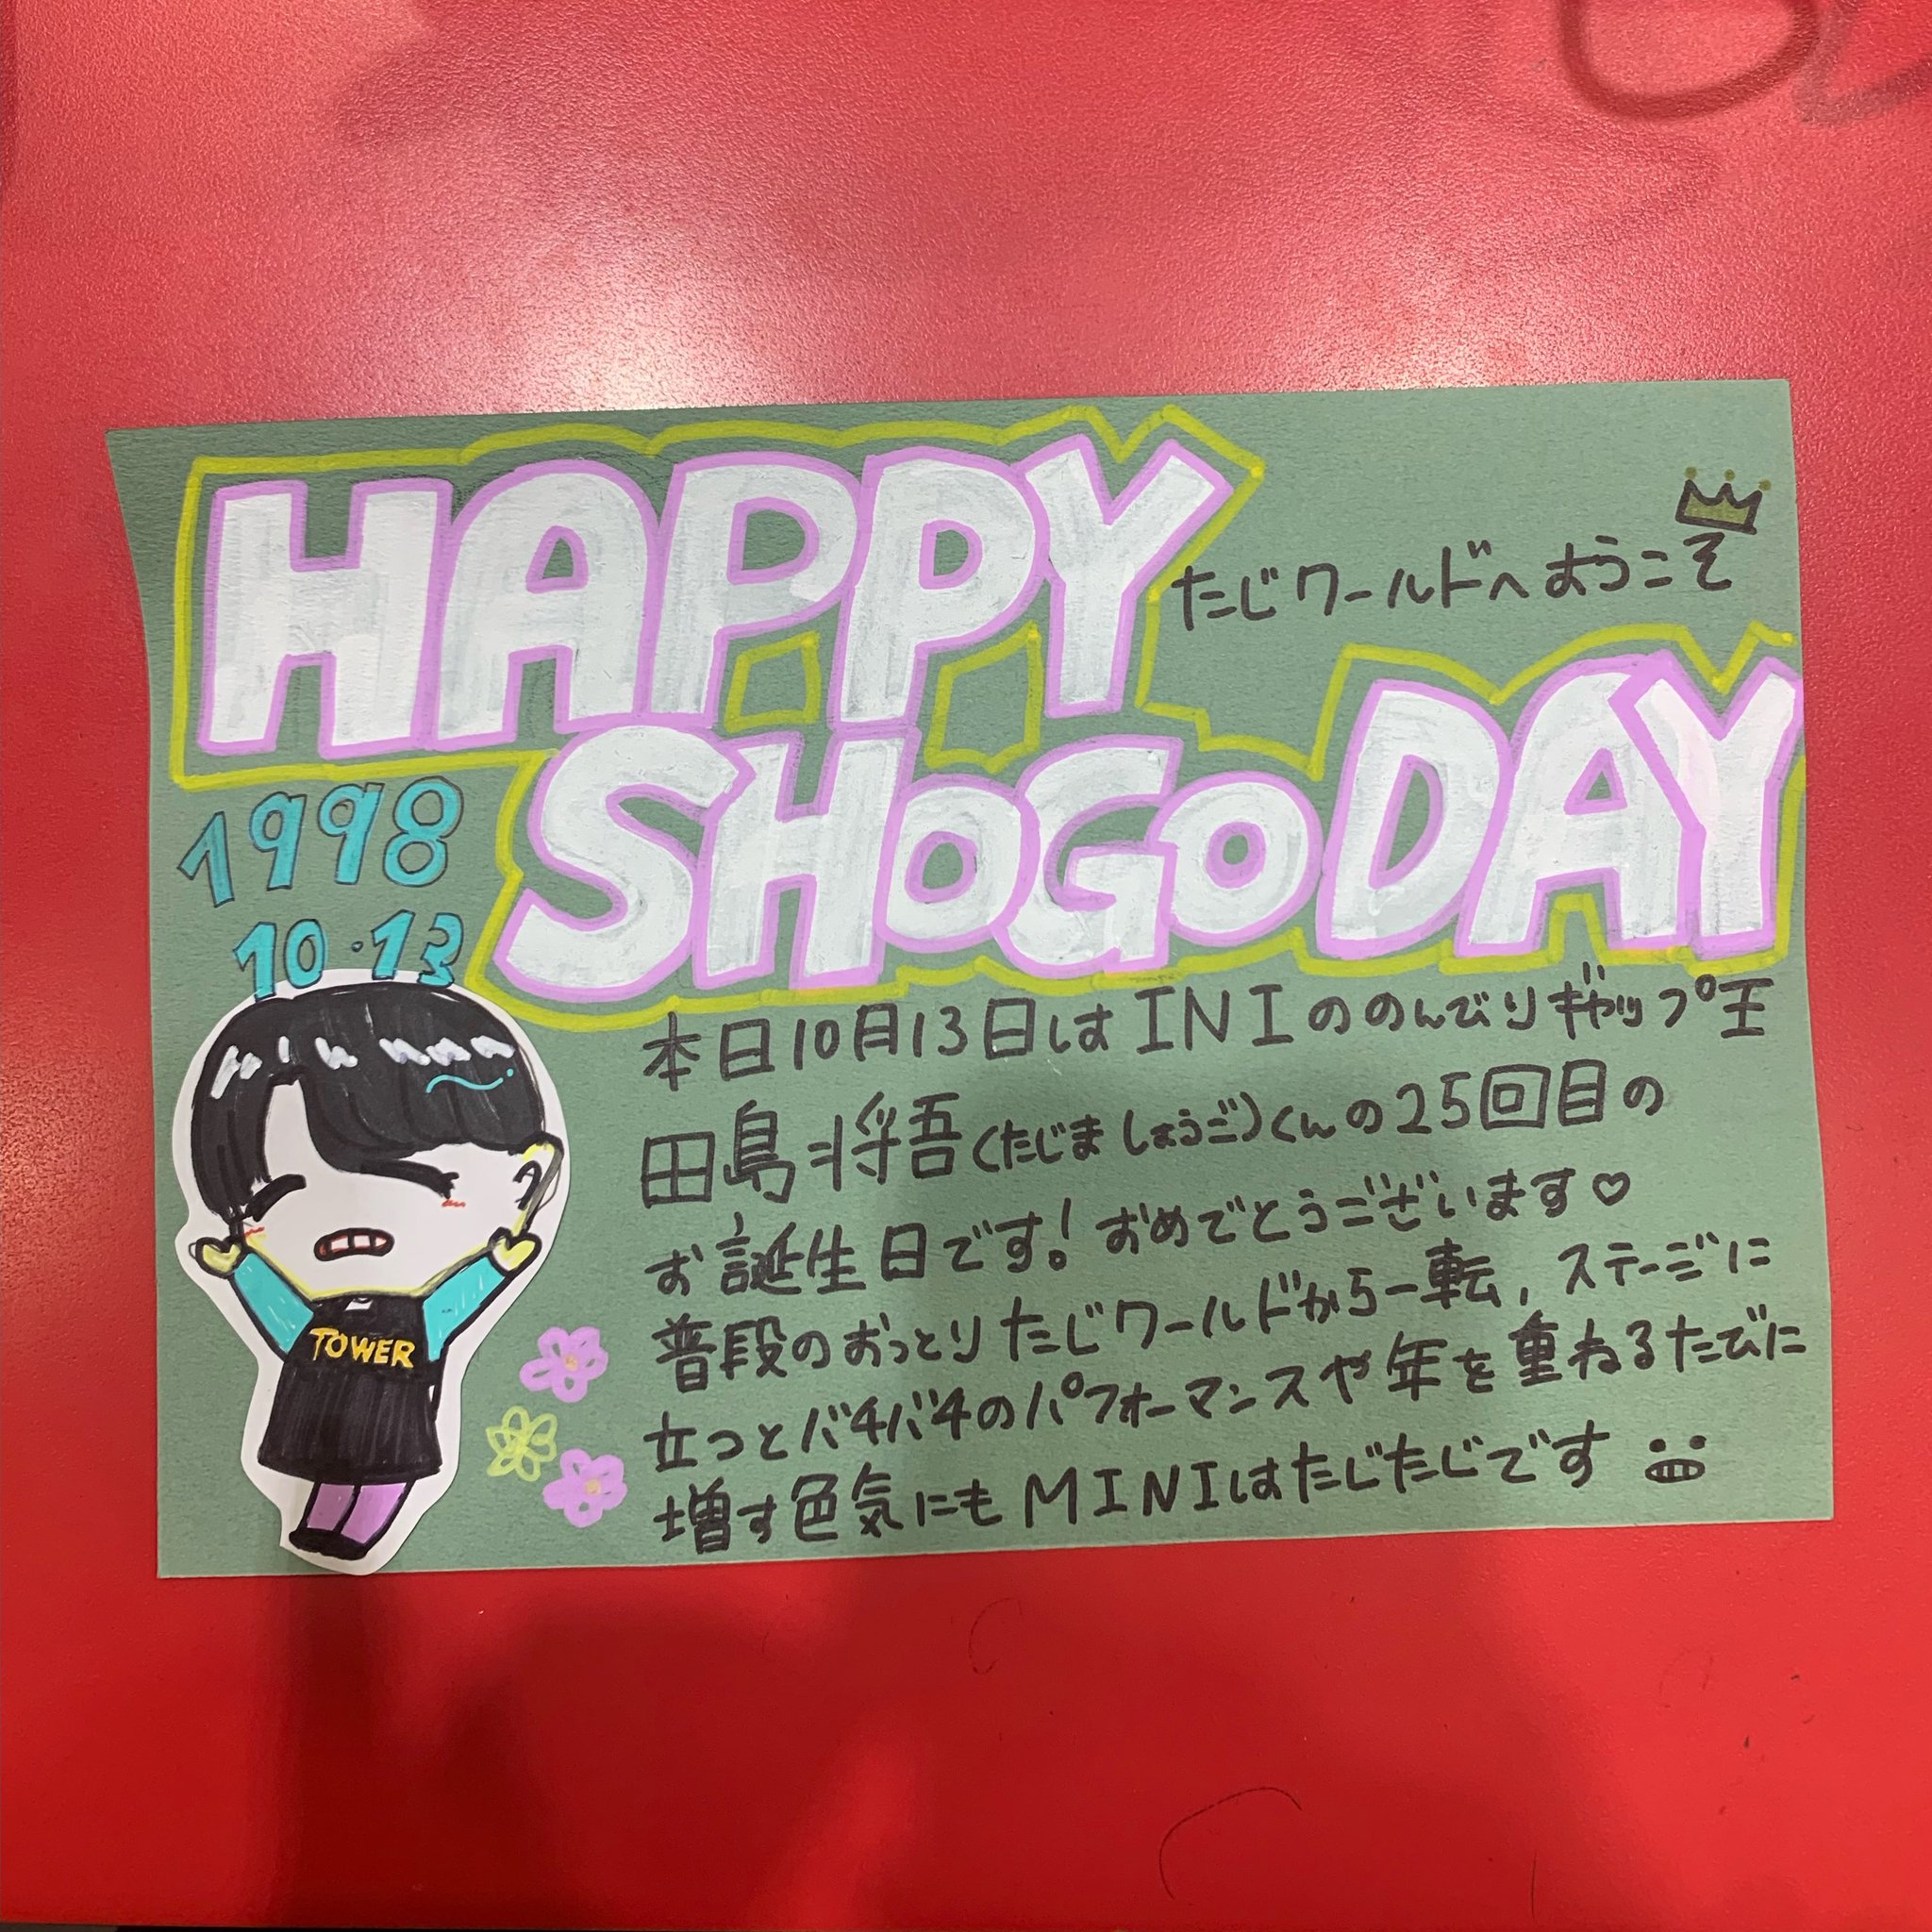 HAPPY
たじワールドへようこそ
SHOGO DAY
1998
10・13
本日10月13日はINIののんびりギャップ王
田島将吾(たじましょうご)くんの25回目の
お誕生日です!おめでとうございます♡
普段のおっとりたじワールドから一転,ステージに
立つとバチバチのパフォーマンスや年を重ねるたびに
増す色気にもMINIはたじたじです
TOWER